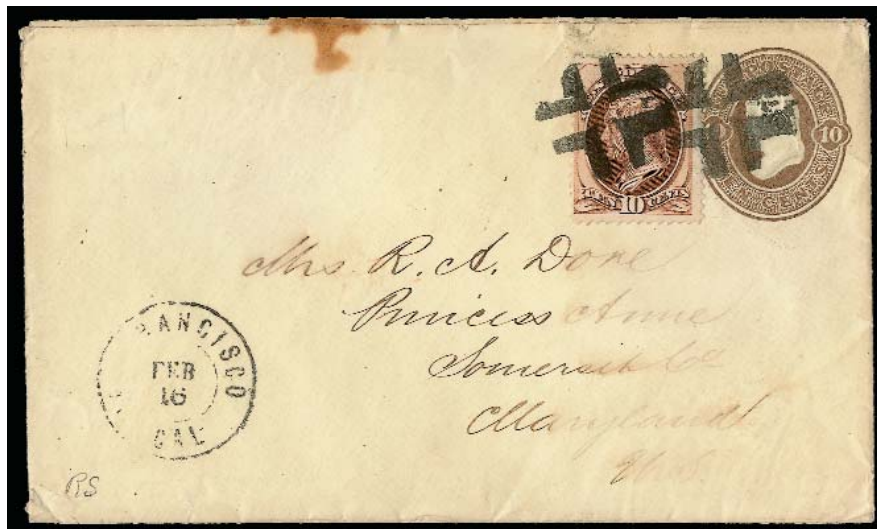 10
10
Mrs R. A. Dore
Princess Anne
Somerset Co
Maryland
RANCISCO
FEB
16
CAL
RS